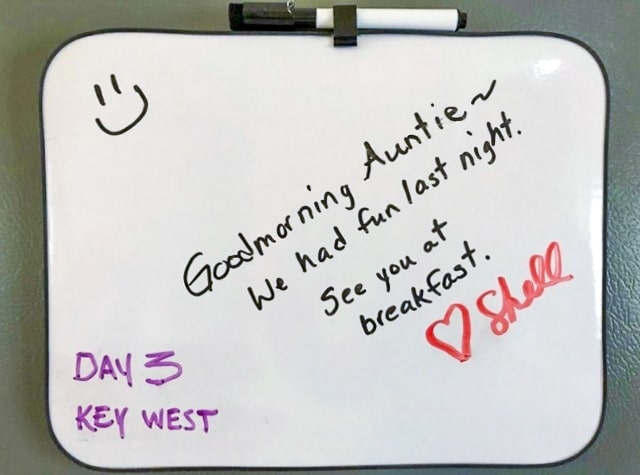 Goodmorning Auntie~
We had fun last night.
See you at
breakfast.
♡ Shell
DAY 3
KEY WEST